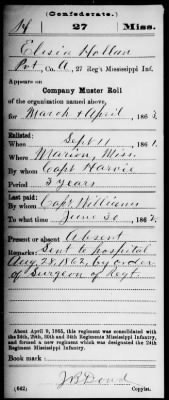 (Confederate.)
H 27 Miss.
Elisia Hollan
Pvt, Co. A, 27 Reg't Mississippi Inf.
Appears on
Company Muster Roll
of the organization named above,
for March & April, 186
Enlisted:
When Sept 11, 1861.
Where Marion, Miss.
By whom Capt Harvie
Period 3 years
Last paid:
By whom Capt. Williams
To what time June 30, 186
Present or absent Absent
Remarks: Sent to hospital
Aug 28, 1862, by order
of Surgeon of Regt.
About April 9, 1865, this regiment was consolidated with
the 24th, 29th, 30th and 34th Regiments Mississippi Infantry,
and formed a new regiment which was designated the 24th
Regiment Mississippi Infantry.
Book mark:
(642) Copyist.